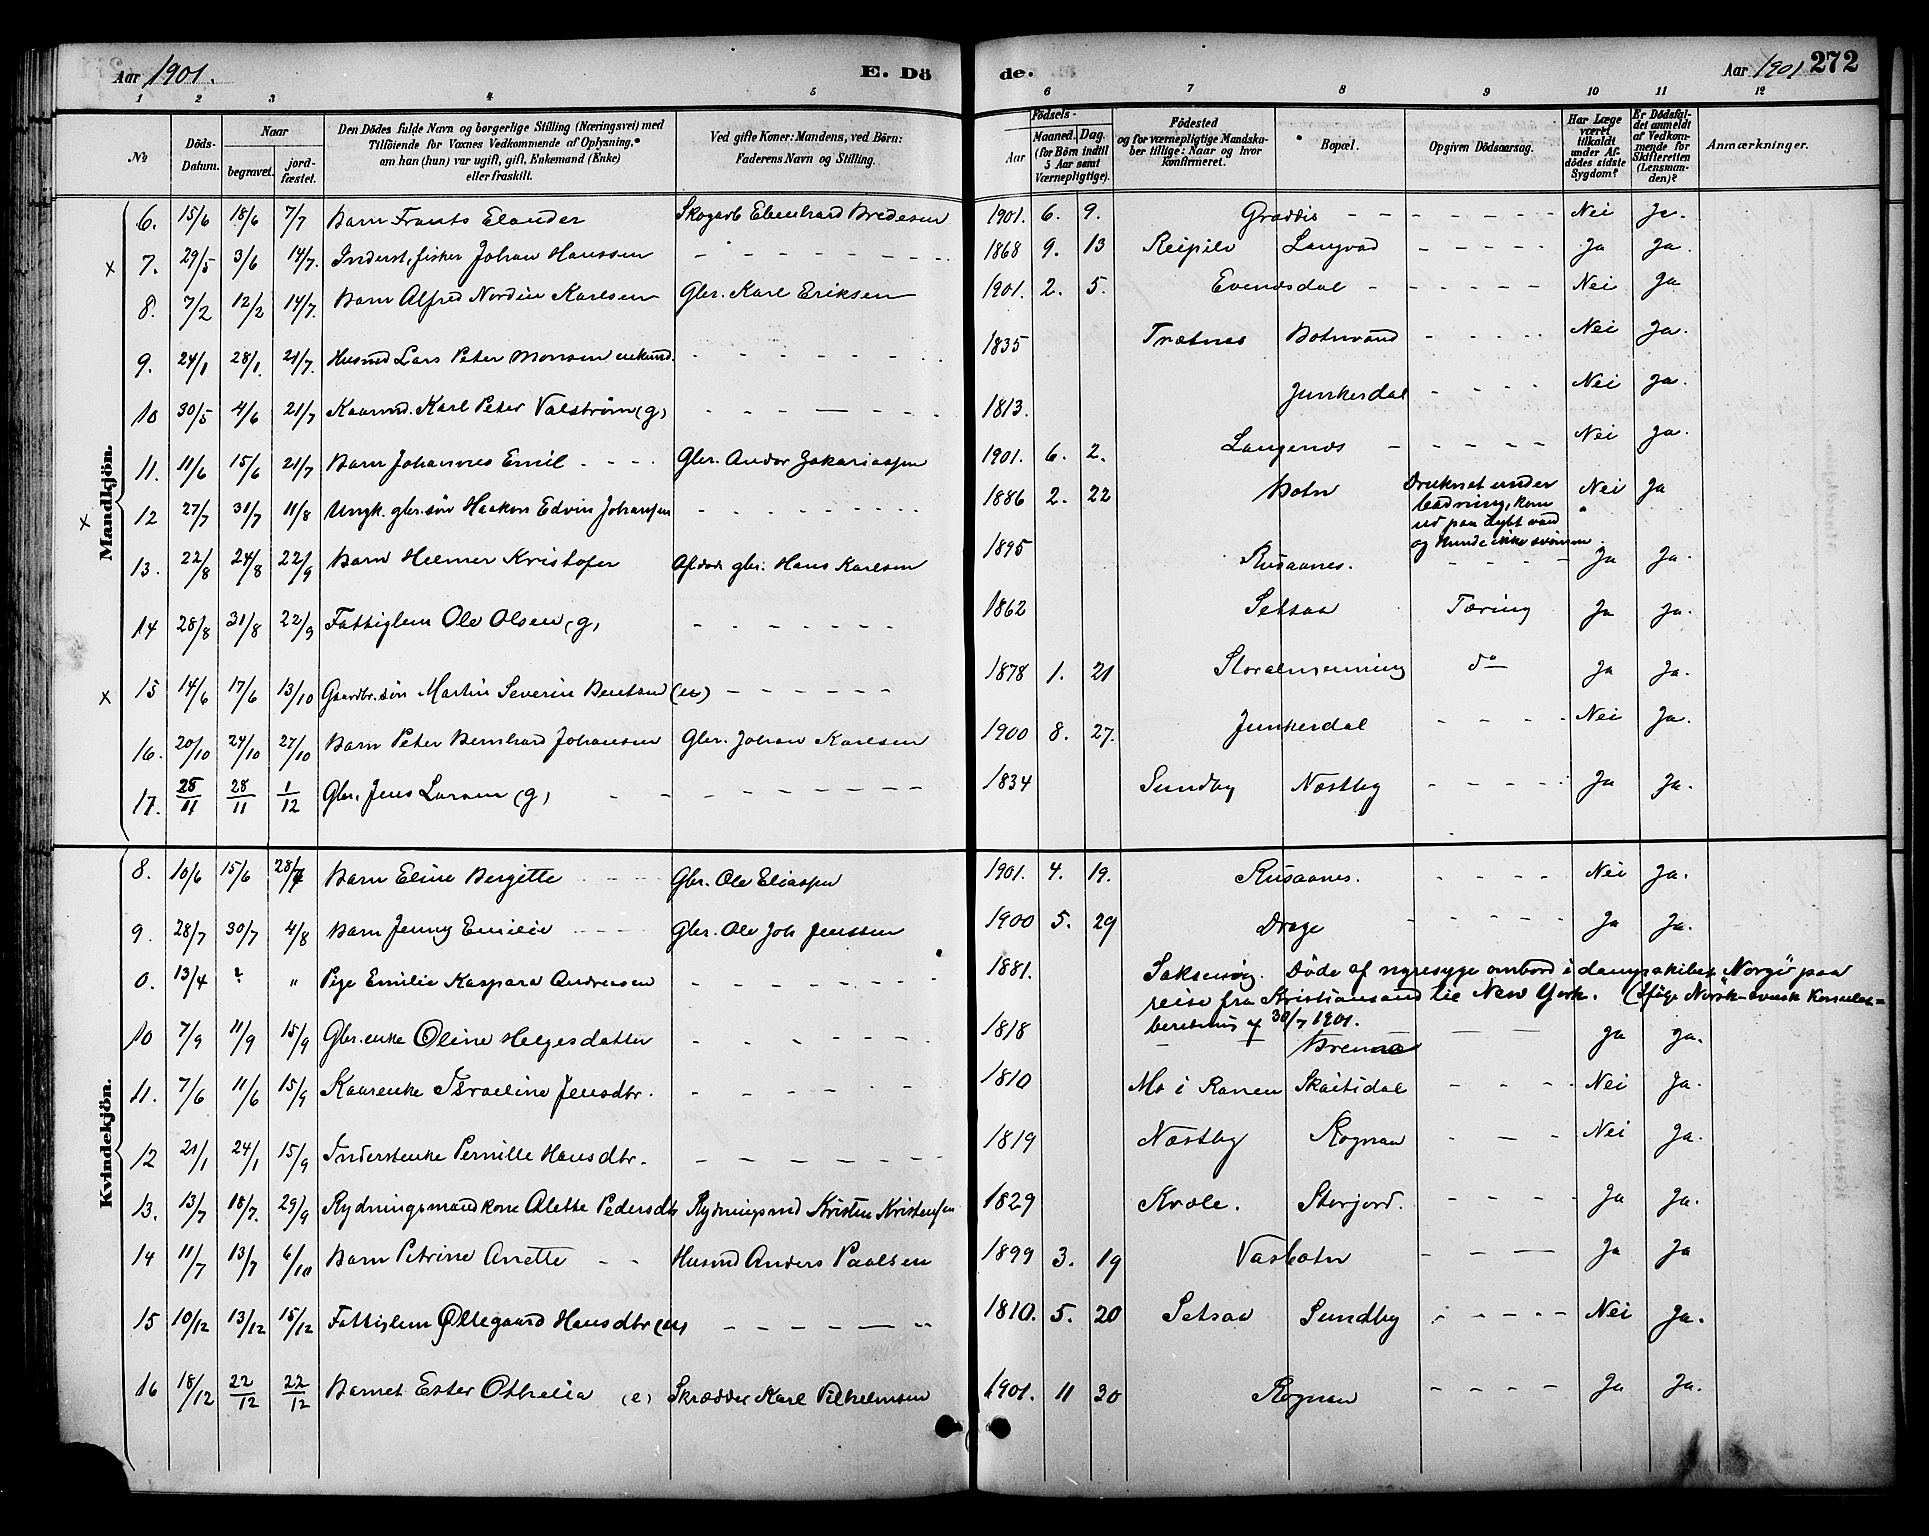 Aar 1901. E. Dö de. Aar 1901 272
1 2 3 4 5 6 7 8 9 10 11 12
No
Döds-Datum.
Naar
begravet.
jord-fæstet.
Den Dödes fulde Navn og borgerlige Stilling (Næringsvei) med
Tilföiende for Voxnes Vedkommende af Oplysning,*
om han (hun) var ugift, gift, Enkemand (Enke)
eller fraskilt.
Ved gifte Koner: Mandens, ved Börn:
Faderens Navn og Stilling.
Födsels-
Aar
Maaned. Dag.
(for Börn indtil
5 Aar samt
Værnepligtige).
Födested
og for værnepligtige Mandska-
ber tillige: Naar og hvor
konfirmeret.
Bopæl.
Opgiven Dödsaarsag.
Har Læge
været
tilkaldt
under Af-
dödes sidste
Sygdom?
Er Dödsfal-
det anmeldt
af Vedkom-
mende for
Skifteretten
(Lensman-
den)?
Anmærkninger.
Mandkjön.
6. 15/6 18/6 7/7 Barn Frants Elander Skogarb Ebenhard Bredesen 1901. 6. 9. Graddis - - - - - - - Nei Ja.
x 7. 29/5 3/6 14/7. Inderst, fisker Johan Hanssen - - - - - - - - 1868 9. 13 Reipila Langvad - - - - - Ja Ja.
8. 7/2 12/2 14/7. Barn Alfred Nordin Karlsen Gbr. Karl Eriksen 1901. 2. 5. Evensdal - - - - - - Nei Ja
9. 24/1 28/1. 21/7. Husmd Lars Peter Monsen enkemd. - - - - - - - 1835 Trætnes Botnvand - - - - Nei Ja.
10 30/5 4/6 21/7 Kaarmd. Karl Peter Valstrøm (g) - - - - - - - 1813. Junkerdal - - - - Nei Ja.
11. 11/6 15/6 21/7 Barn Johannes Emil - - - - Gbr. Andor Zakariassen 1901. 6. 2. Langenes - - - - - - Nei Ja.
x 12 27/7 31/7 11/8 Ungk. gbr. søn Haakon Edvin Johansen - - - - - - - - 1886 2. 22 Botn Druknet under Nei Ja
badning, kom
ud paa dybt vand
og kunde ikke svømme.
13. 22/8 24/8 22/9 Barn Helmer Kristofer Afdøde gbr. Hans Karlsen 1895 Rusaanes. - - - - Ja Ja.
14 28/8 31/8 22/9 Fattiglem Ole Olsen (g) - - - - - - - 1862 Setsaa Tæring Ja Ja.
x 15 14/6 17/6 13/10 Gaardbr. søn Martin Severin Bentsen (u) - - - - - - 1878 1. 21 Storalmenning do Ja Ja.
16. 20/10 24/10 27/10 Barn Peter Bernhard Johansen Gbr. Johan Karlsen 1900 8. 27. Junkerdal - - - - Nei Ja.
17. 25/11 28/11 1/12 Gbr. Jens Larsen (g) - - - - - - - - - 1834 Sundby Næstby - - - - Ja Ja.
Kvindekjön.
8. 10/6 15/6 28/7 Barn Eline Bergitte - - - - Gbr. Ole Eliassen 1901. 4. 19. Rusaanes. - - - - Nei Ja.
9. 28/7 30/7 4/8 Barn Jenny Emilie - - - - Gbr. Ole Joh Jenssen 1900 5. 29 Drage - - - - - - Ja Ja.
0. 13/4 ? " Pige Emilie Kaspara Andersen - - - - - - - - 1881. Saksenvig. Døde af nyresyge ombord i dampskibet Norge paa
reise fra Kristiansand til New York. (Ifølge Norsk-svensk Konsulat-
beretning af 30/7 1901.
10 7/9 11/9 15/9 Gbr. enke Oline Helgesdatter - - - - - - - 1818 Brenna - - Ja Ja.
11. 7/6 11/6 15/9 Kaarenke Israeline Jensdtr. - - - - - - - 1810 Mo i Ranen Skaitidal - - - - Nei Ja.
12 21/1 24/1 15/9 Inderstenke Pernille Hansdtr. - - - - - - - - 1819 Næstby Rognan - - - Nei Ja.
13. 13/7 18/7. 29/9 Rydningsmand kone Alette Pedersdtr Rydningsmd Kristen Kristensen 1829 Kvæle. Storjord. - - - - Ja Ja.
14 11/7 13/7 6/10 Barn Petrine Anette - - Husmd Anders Paalsen 1899 3. 19 Vasbotn - - - Ja Ja
15 10/12 13/12 15/12 Fattiglem Ollegaard Hansdtr (u) - - - - - - " 1810. 5. 20 Setsaa Sundby - - - - Nei Ja.
16 18/12 22/12 22/12 Barnet Ester Othelia (e) Skrædder Karl Vilhelmsen 1901. 11 30 Rognan - - - - Ja Ja.